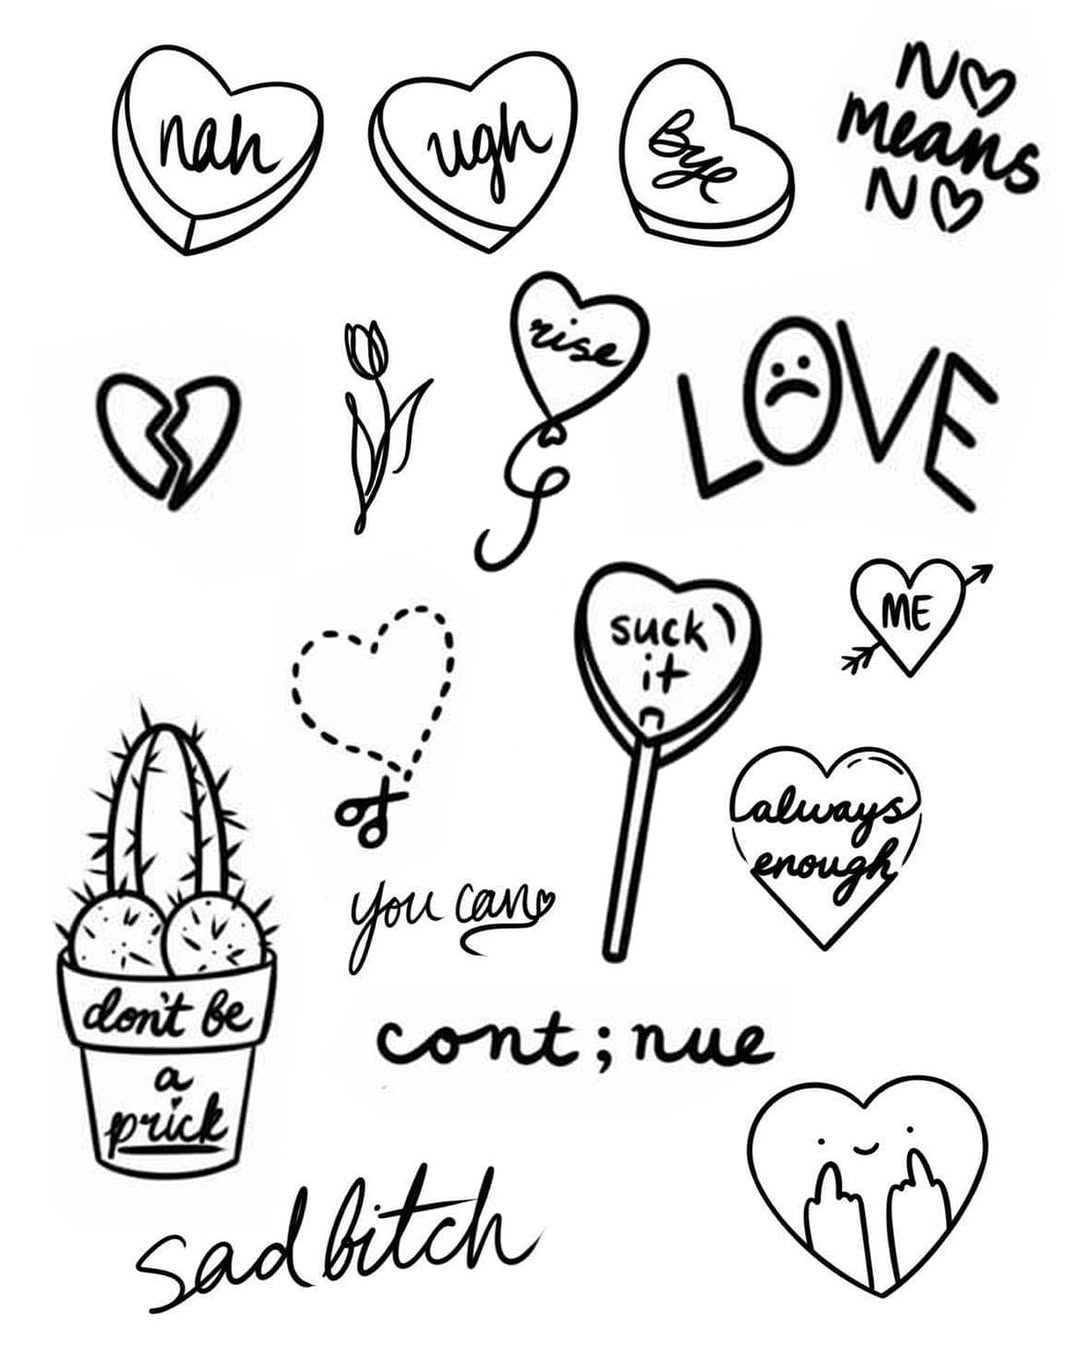 nah
ugh
Bye
NO
means
NO
rise
LOVE
suck
it
ME
always
enough
you can
don't be
a
prick
cont;nue
sad bitch